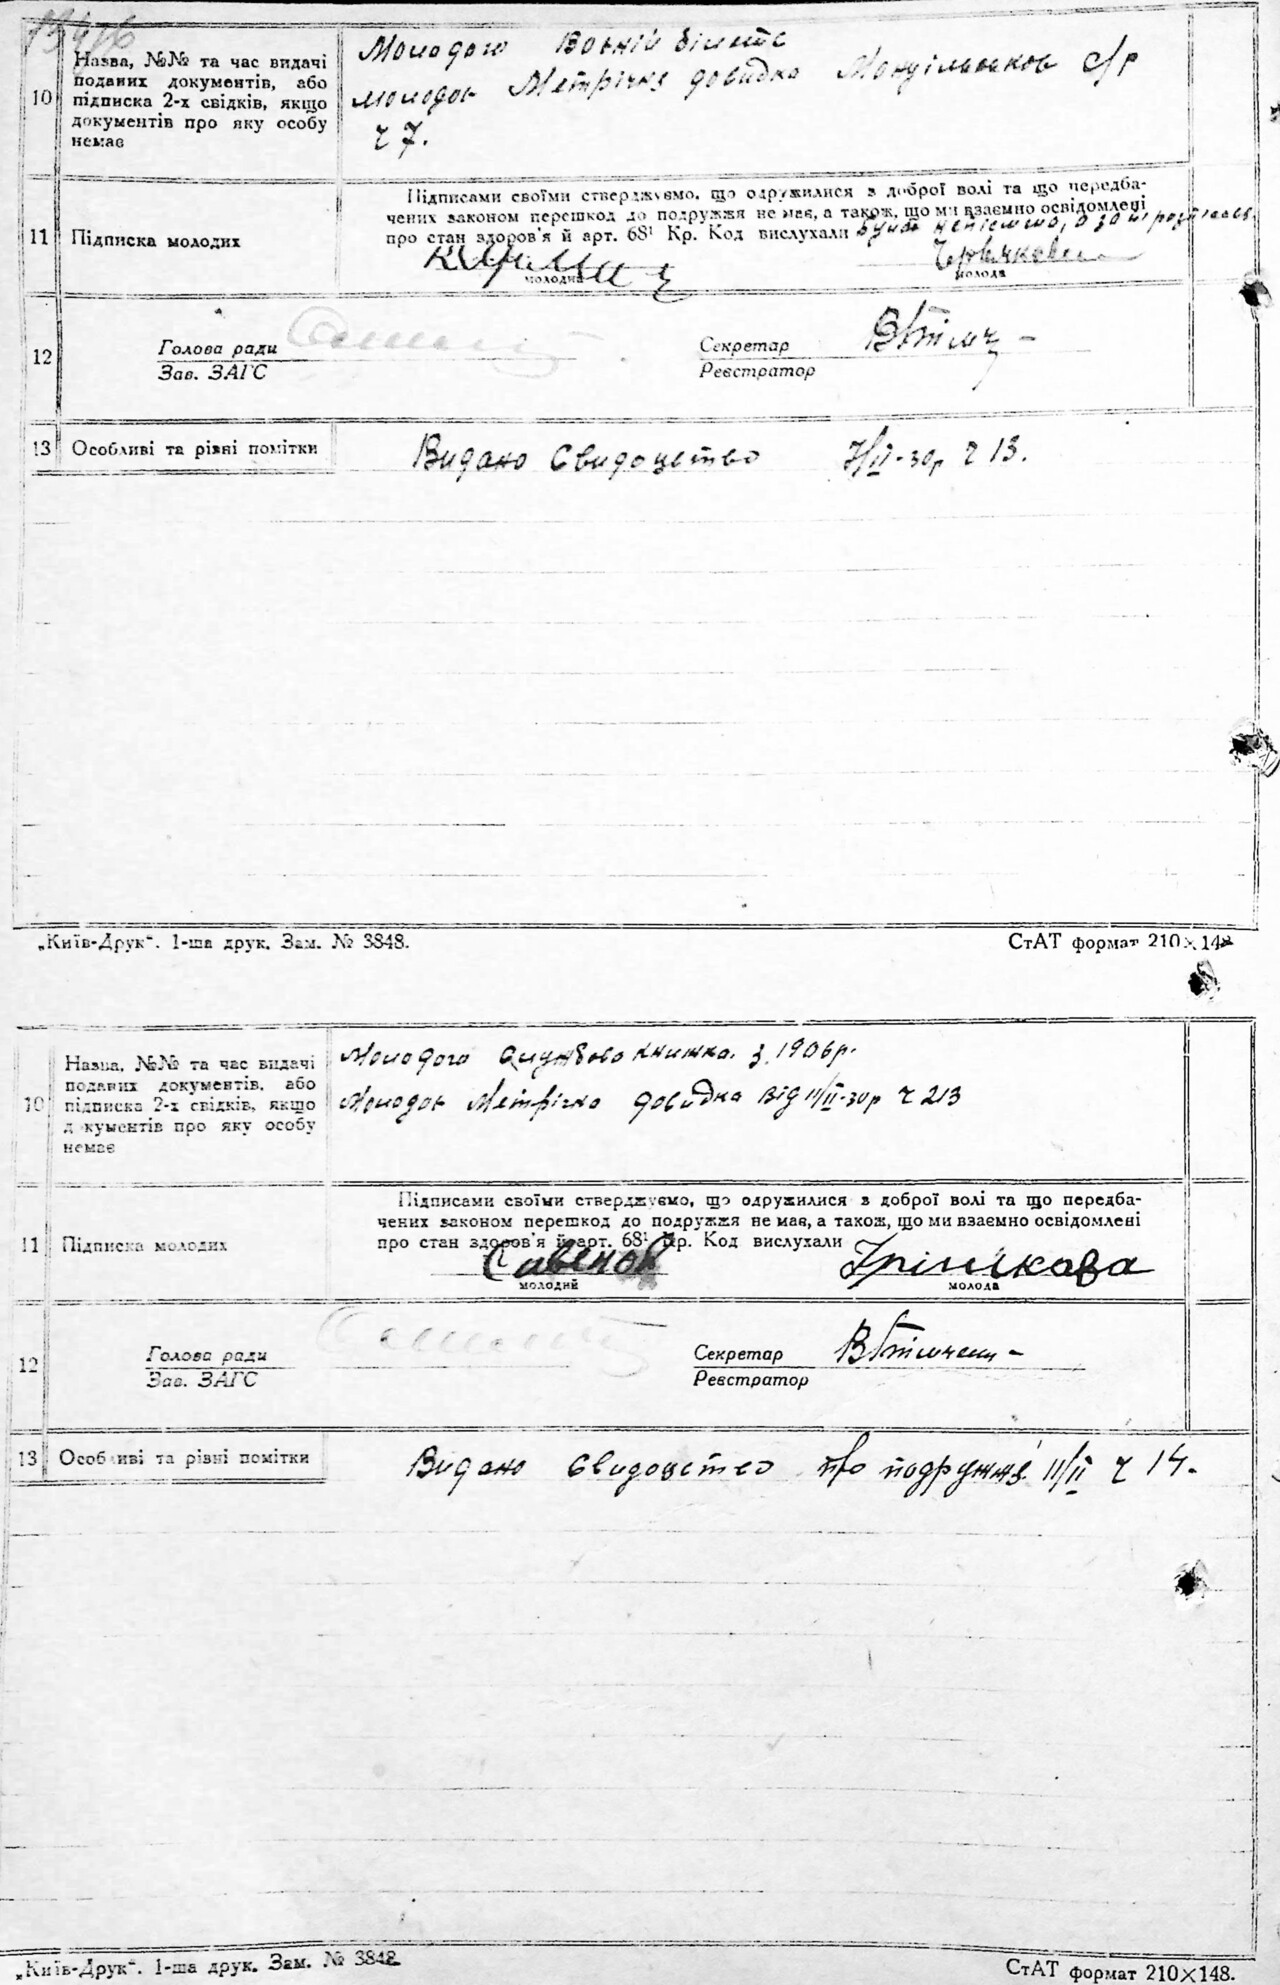 10
Назва, №№ та час видачі
поданих документів, або
підписка 2-х свідків, якщо
документів про яку особу
немає
Молодого Воєній білєтє
молодої Метрічна довидка С/Р
ч 7.
11
Підписка молодих
Підписами своїми стверджуємо, що одружилися з доброї волі та що передба-
чених законом перешкод до подружжя не має, а також, що ми взаємно освідомлені
про стан здоров'я й арт. 68¹ Кр. Код вислухали
молодий
молода
12
Голова ради
Зав. ЗАГС
Секретар
Реєстратор
13
Особливі та різні помітки
Видано Свидоцство 7/II-30р ч 13.
„Київ-Друк“. 1-ша друк. Зам. № 3848.
СтАТ формат 210×148
10
Назва, №№ та час видачі
поданих документів, або
підписка 2-х свідків, якщо
документів про яку особу
немає
Молодого Службова книжка з 1906р.
Молодої Метрічна довидка від 11/II-30р ч 213
11
Підписка молодих
Підписами своїми стверджуємо, що одружилися з доброї волі та що передба-
чених законом перешкод до подружжя не має, а також, що ми взаємно освідомлені
про стан здоров'я й арт. 68¹ Кр. Код вислухали
Савенов
молодий
Грінікова
молода
12
Голова ради
Зав. ЗАГС
Секретар
Реєстратор
13
Особливі та різні помітки
Видано Свидоцство про подружжя 11/II ч 14.
„Київ-Друк“. 1-ша друк. Зам. № 3848.
СтАТ формат 210×148.